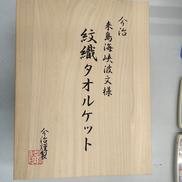 今治
来島海峡波文様
紋織タオルケット
今治謹製